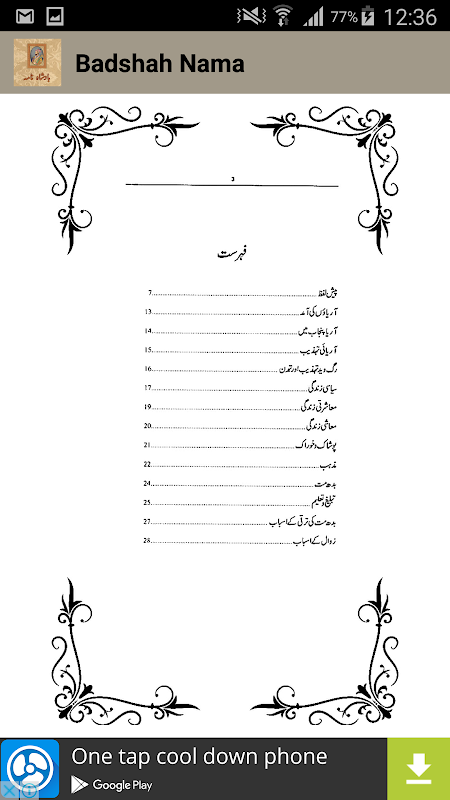 77% 12:36
بادشاہ نامہ
Badshah Nama
3
فہرست
پیش لفظ 7
آریاؤں کی آمد 13
آریا پنجاب میں 14
آریائی تہذیب 15
رگ وید تہذیب اور تمدن 16
سیاسی زندگی 17
معاشرتی زندگی 19
معاشی زندگی 20
پوشاک و خوراک 21
مذہب 22
بدھ مت 24
تبلیغ و تعلیم 25
بدھ مت کی ترقی کے اسباب 27
زوال کے اسباب 28
One tap cool down phone
Google Play